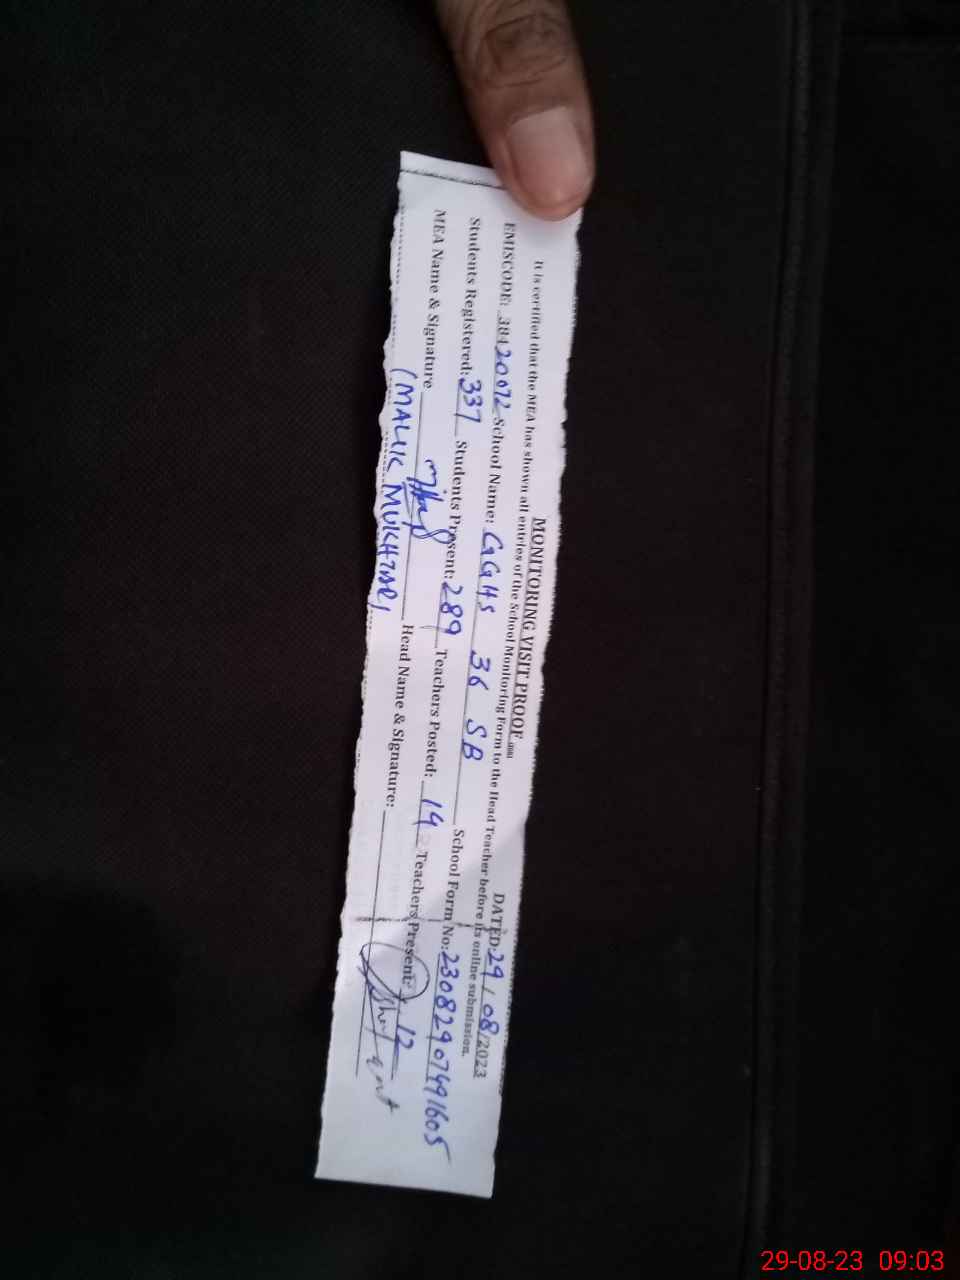 MONITORING VISIT PROOF
DATED: 29/08/2023
It is certified that the MEA has shown all entries of the School Monitoring Form to the Head Teacher before its online submission.
EMISCODE: 38420072 School Name: GGHS 36 SB School Form No: 23082907491605
Students Registered: 337 Students Present: 289 Teachers Posted: 14 Teachers Present: 12
MEA Name & Signature Head Name & Signature:
(MALIK MUKHTAR)
29-08-23 09:03